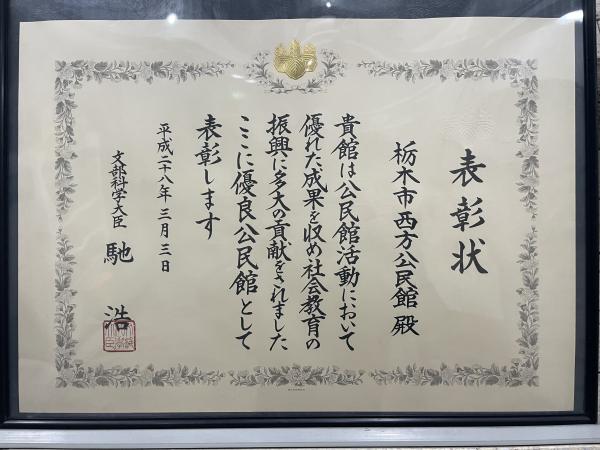 表彰状
栃木市西方公民館 殿
貴館は公民館活動において
優れた成果を収め社会教育の
振興に多大の貢献をされました
ここに優良公民館として
表彰します
平成二十八年三月三日
文部科学大臣 馳 浩